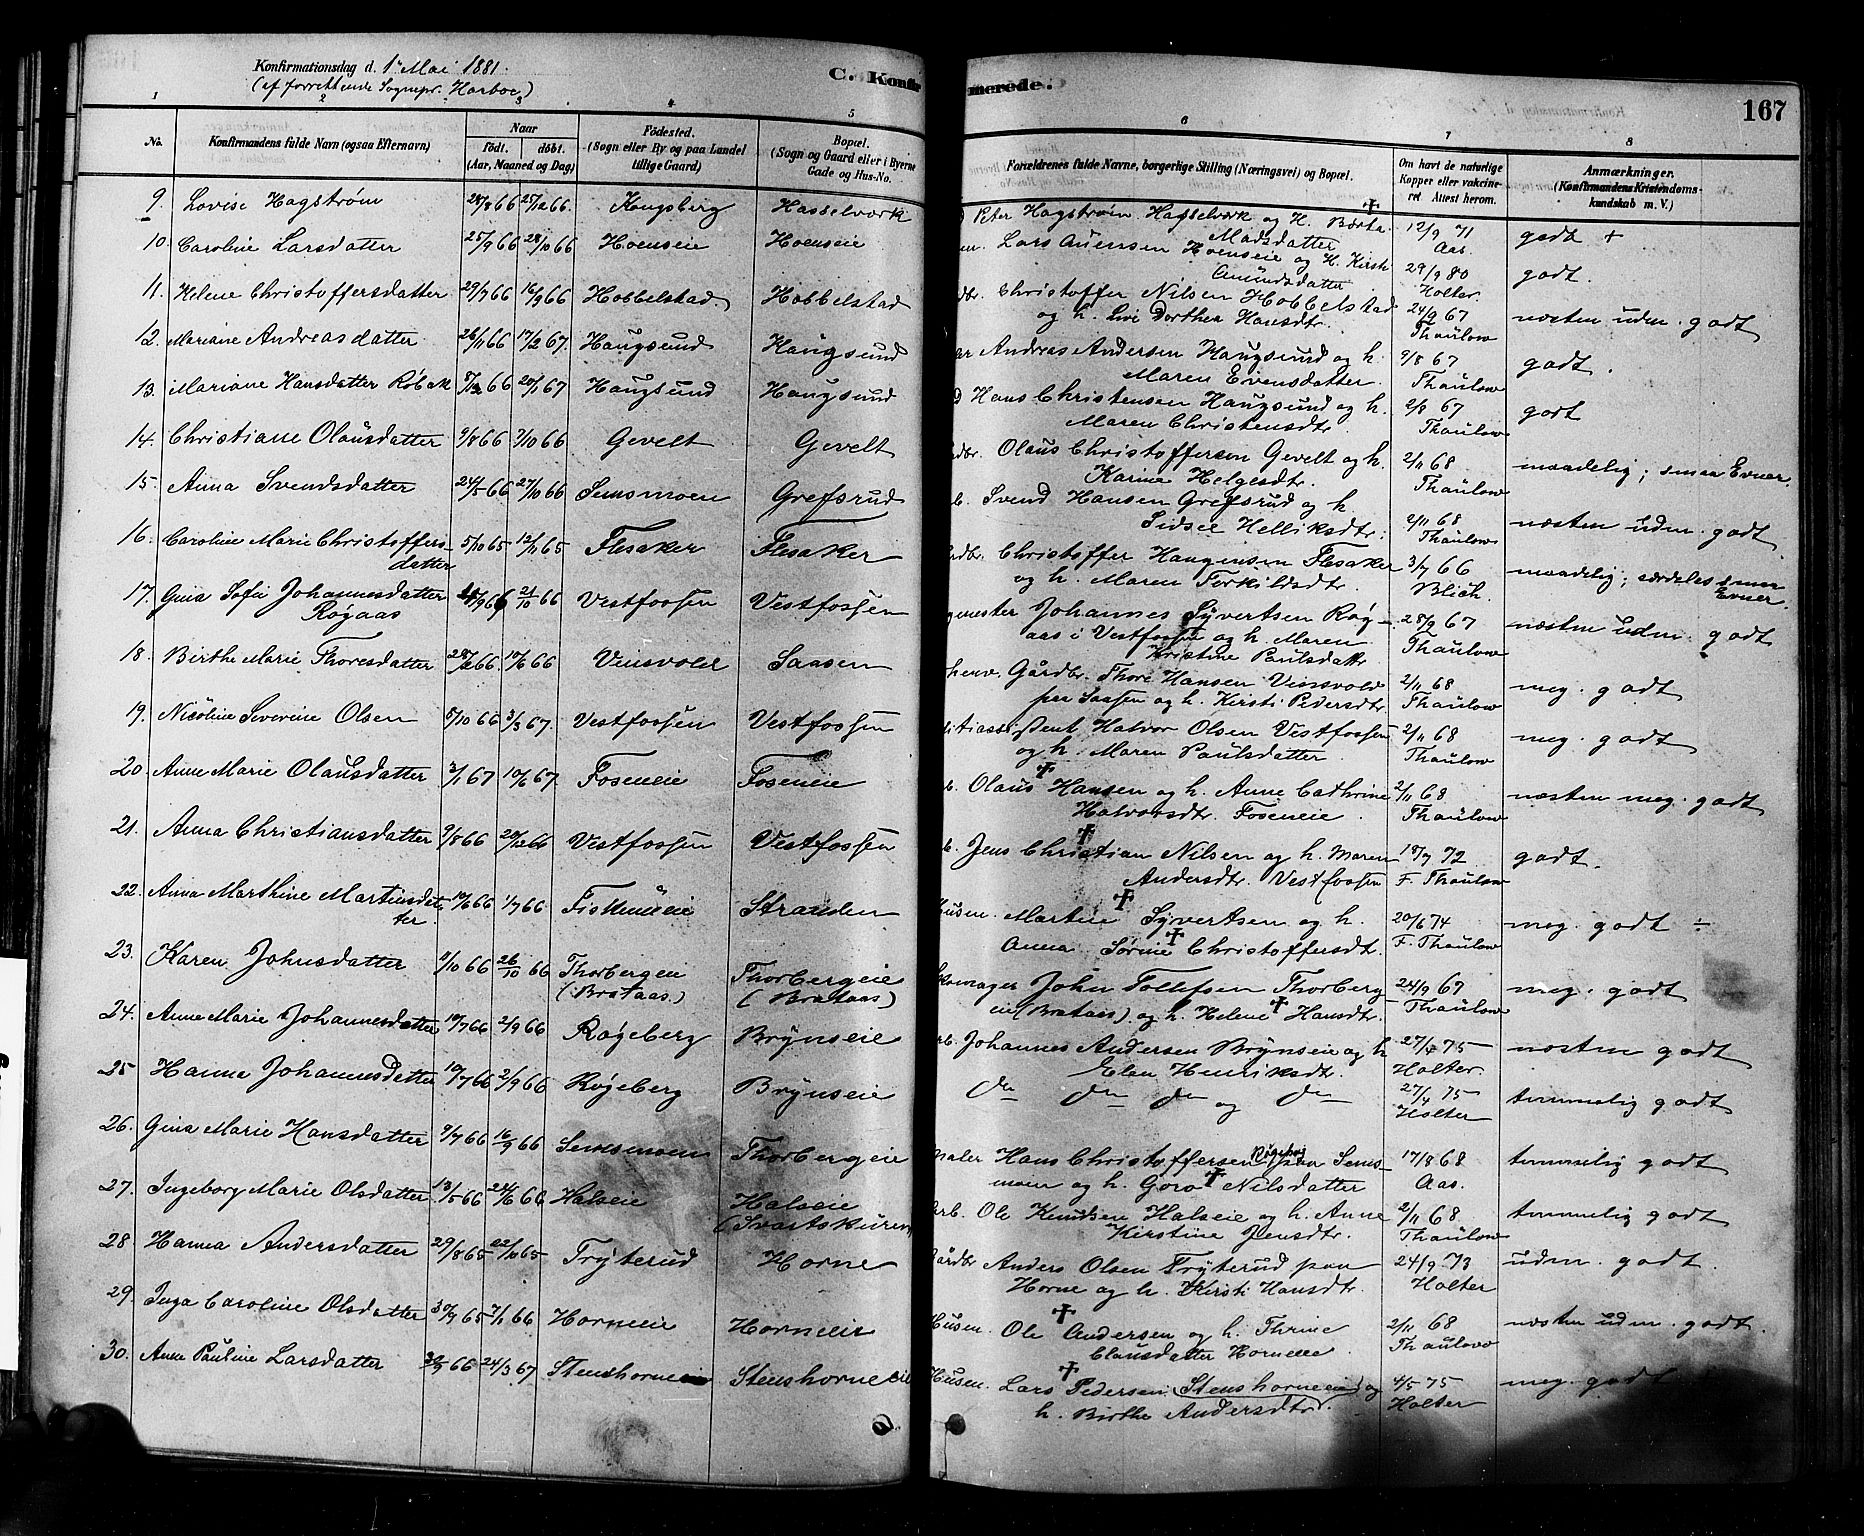 Konfirmationsdag d. 1ste Mai 1881.
(af forrettende Sognepr. Harboe)
C. Konfir
merede.
167
1 2 3 4 5 6 7 8
No.
Konfirmandens fulde Navn (ogsaa Efternavn)
Naar
født. døbt.
(Aar, Maaned og Dag)
Fødested.
(Sogn eller By og paa Landet
tillige Gaard)
Bopæl.
(Sogn og Gaard eller i Byerne
Gade og Hus-No.
Forældrenes fulde Navne, borgerlige Stilling (Næringsvei) og Bopæl.
Om havt de naturlige
Kopper eller vakcine-
ret Attest herom.
Anmærkninger.
(Konfirmandens Kristendoms-
kundskab m. V.)
9. Lovise Hagstrøm 28/8 66 25/12 66. Kongsberg Hasselværk
Peter Hagstrøm Hasselværk og H. Bærta
Madsdatter
12/9 71 Aas. godt +
10. Caroline Larsdatter 25/9 66 28/10 66 Hoenseie Hoenseie
Lars Hoenseie og H. Kirsti
Amundsdatter
29/9 80 Holter. godt.
11. Helene Christoffersdatter 29/7 66 16/9 66 Hobbelstad Hobbelstad
Christoffer Nilsen Hobbelstad
og h. Live Dorthea Hansdtr.
24/9 67 Thaulow næsten udm. godt
12. Mariane Andreasdatter 26/11 66 17/2 67. Haugsund Haugsund
Andreas Andersen Haugsund og h.
Maren Evensdatter.
9/8 67 Thaulow godt.
13. Mariane Hansdatter Røbak 8/12 66 20/1 67 Haugsund Haugsund
Hans Christensen Haugsund og h.
Maren Christensdtr.
2/8 67 Thaulow godt
14. Christiane Olausdatter 9/8 66 7/10 66 Gevelt Gevelt
Olaus Christoffersen Gevelt og h.
Karine Helgesdtr.
2/11 68 Thaulow maadelig; smaa Evner.
15. Anna Svendsdatter 24/5 66 27/10 66 Semsmoen Grefsrud
Svend Hansen Grefsrud og h.
Sidsee Helliksdtr.
2/11 68 Thaulow næsten udm. godt
16. Caroline Marie Christoffers-
datter 5/10 65 12/11 65 Flesaker Flesaker
Christoffer Haugensen Flesaker
og h. Maren Torkildsdtr.
3/7 66 Blich. maadelig; særdeles smaa
Evner.
17. Gina Sofie Johannesdatter
Røgaas /9 66 21/10 66 Vestfossen Vestfossen
Johannes Syvertsen Røg-
aas i Vestfossen og h. Maren
Kristine Paulsdatter
28/9 67 Thaulow næsten udm. godt
18. Birthe Marie Thoresdatter 28/2 66 10/6 66 Vinsvold Saasen
Gårdbr. Thore Hansen Vinsvold
paa Saasen og h. Kirsti Pedersdtr
2/11 68 Thaulow meg. godt
19. Nicoline Severine Olsen 8/10 66 3/3 67. Vestfossen Vestfossen
Halvor Olsen Vestfossen
og h. Maren Paulsdatter.
2/11 68 Thaulow meg. godt
20. Anne Marie Olausdatter 3/1 67 10/6 67. Foseneie Foseneie
Olaus Hansen og h. Anne Cathrine
Halvorsdtr. Foseneie.
2/11 68 Thaulow næsten meg. godt
21. Anna Christiansdatter 9/8 66 20/12 66 Vestfossen Vestfossen
Jens Christian Nilsen og h. Maren
Andersdtr. Vestfossen
18/7 72 F. Thaulow godt.
22. Anna Marthine Martinsdat-
ter 10/6 66 1/7 66 Fiskumeie Stranden
Husm. Martin Syvertsen og h.
Anna Sørine Christoffersdtr.
20/6 74 F. Thaulow meg. godt ÷
23. Karen Johnsdatter 2/10 66 26/10 66 Thorbergeie Thorbergeie
(Brataas) (Brataas)
John Tollefsen Thorberg-
eie (Brataas) og h. Helene Hansdtr.
24/9 67 Thaulow meg. godt
24. Anne Marie Johannesdatter 10/7 66 2/9 66 Røgeberg Brynseie
Johannes Andersen Brynseie og h
Elen Henriksdtr.
27/4 75 Holter. næsten godt
25 Hanna Johannesdatter 10/7 66 2/9 66 Røgeberg Brynseie
do do do og do
27/4 75 Holter temmelig godt
26. Gina Marie Hansdatter 9/7 66 16/9 66 Semsmoen Thorbergeie
Maler Hans Christoffersen Røgeberg paa Sems-
moen og h. Goro Nilsdatter
17/8 68 Aas. temmelig godt
27. Ingeborg Marie Olsdatter 13/5 66 24/6 66 Halseie Halseie
(Svartskuren)
Arb. Ole Knudsen Halseie og h. Anne
Kirstine Jensdtr.
2/11 68 Thaulow temmelig godt
28. Hanna Andersdatter 29/8 65 22/10 65 Tryterud Horne
Gårdbr Anders Olsen Tryterud paa
Horne og h. Kirsti Hansdtr.
24/9 73 Holter udm. godt.
29. Inga Caroline Olsdatter 30/9 65 7/1 66 Horneeie Horneeie
Husm. Ole Andersen og h. Thrine
Clausdatter Horneeie.
2/11 68 Thaulow næsten udm. godt.
30. Anne Pauline Larsdatter 30/9 66 24/3 67 Stenshorneeie Stenshorneeie
Husm. Lars Pedersen (Stenshorneeie) og
h. Birthe Andersdtr.
4/5 75 Holter meg. godt